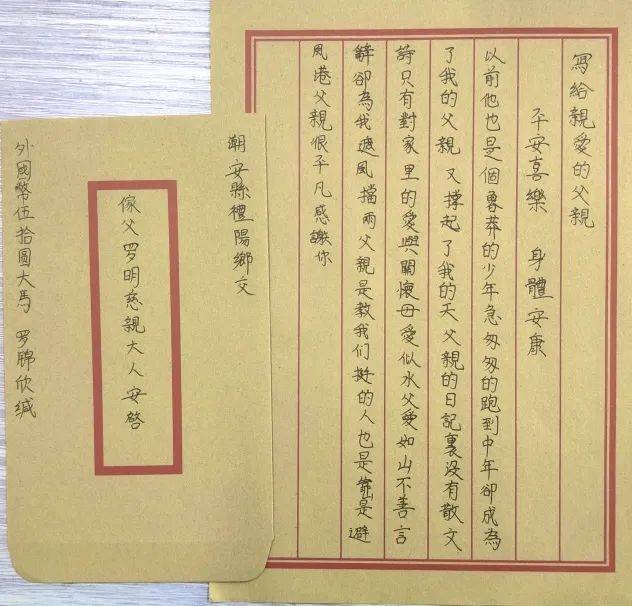 寫給親愛的父親
平安喜樂 身體安康
以前他也是個魯莽的少年急匆匆的跑到中年卻成為
了我的父親 又撐起了我的天 父親的日記裏没有散文
詩只有對家里的愛與關懷母愛似水父愛如山不善言
辭卻為我遮風擋雨父親是教我们挺的人也是靠山是避
風港父親很平凡感謝你
潮安縣禮陽鄉交
傢父罗明慈親大人安啓
外國幣伍拾圓大馬 罗欣缄